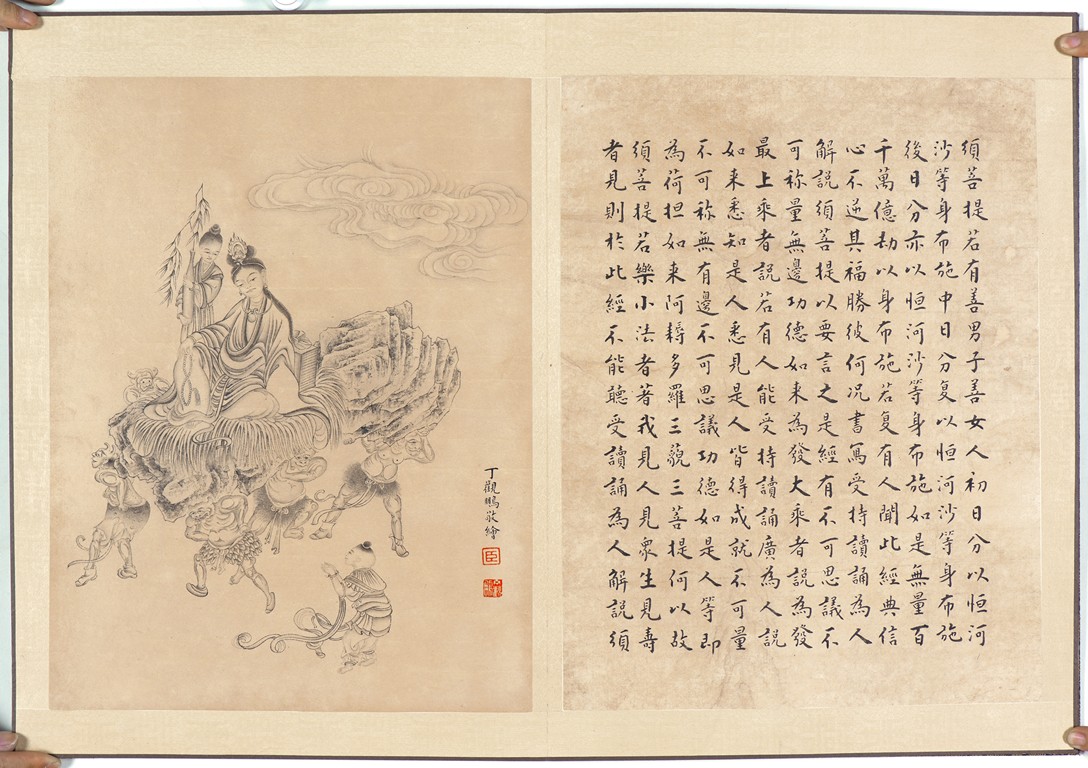 須菩提若有善男子善女人初日分以恒河
沙等身布施中日分复以恒河沙等身布施
後日分亦以恒河沙等身布施如是無量百
千萬億劫以身布施若复有人聞此經典信
心不逆其福勝彼何况書寫受持讀誦為人
解説須菩提以要言之是經有不可思議不
可称量無邊功德如来為發大乘者説為發
最上乘者説若有人能受持讀誦廣為人説
如来悉知是人悉見是人皆得成就不可量
不可称無有邊不可思議功德如是人等即
為荷担如来阿耨多羅三藐三菩提何以故
須菩提若樂小法者著我見人見衆生見壽
者見則於此經不能聽受讀誦為人解説須
丁觀鵬敬繪
臣